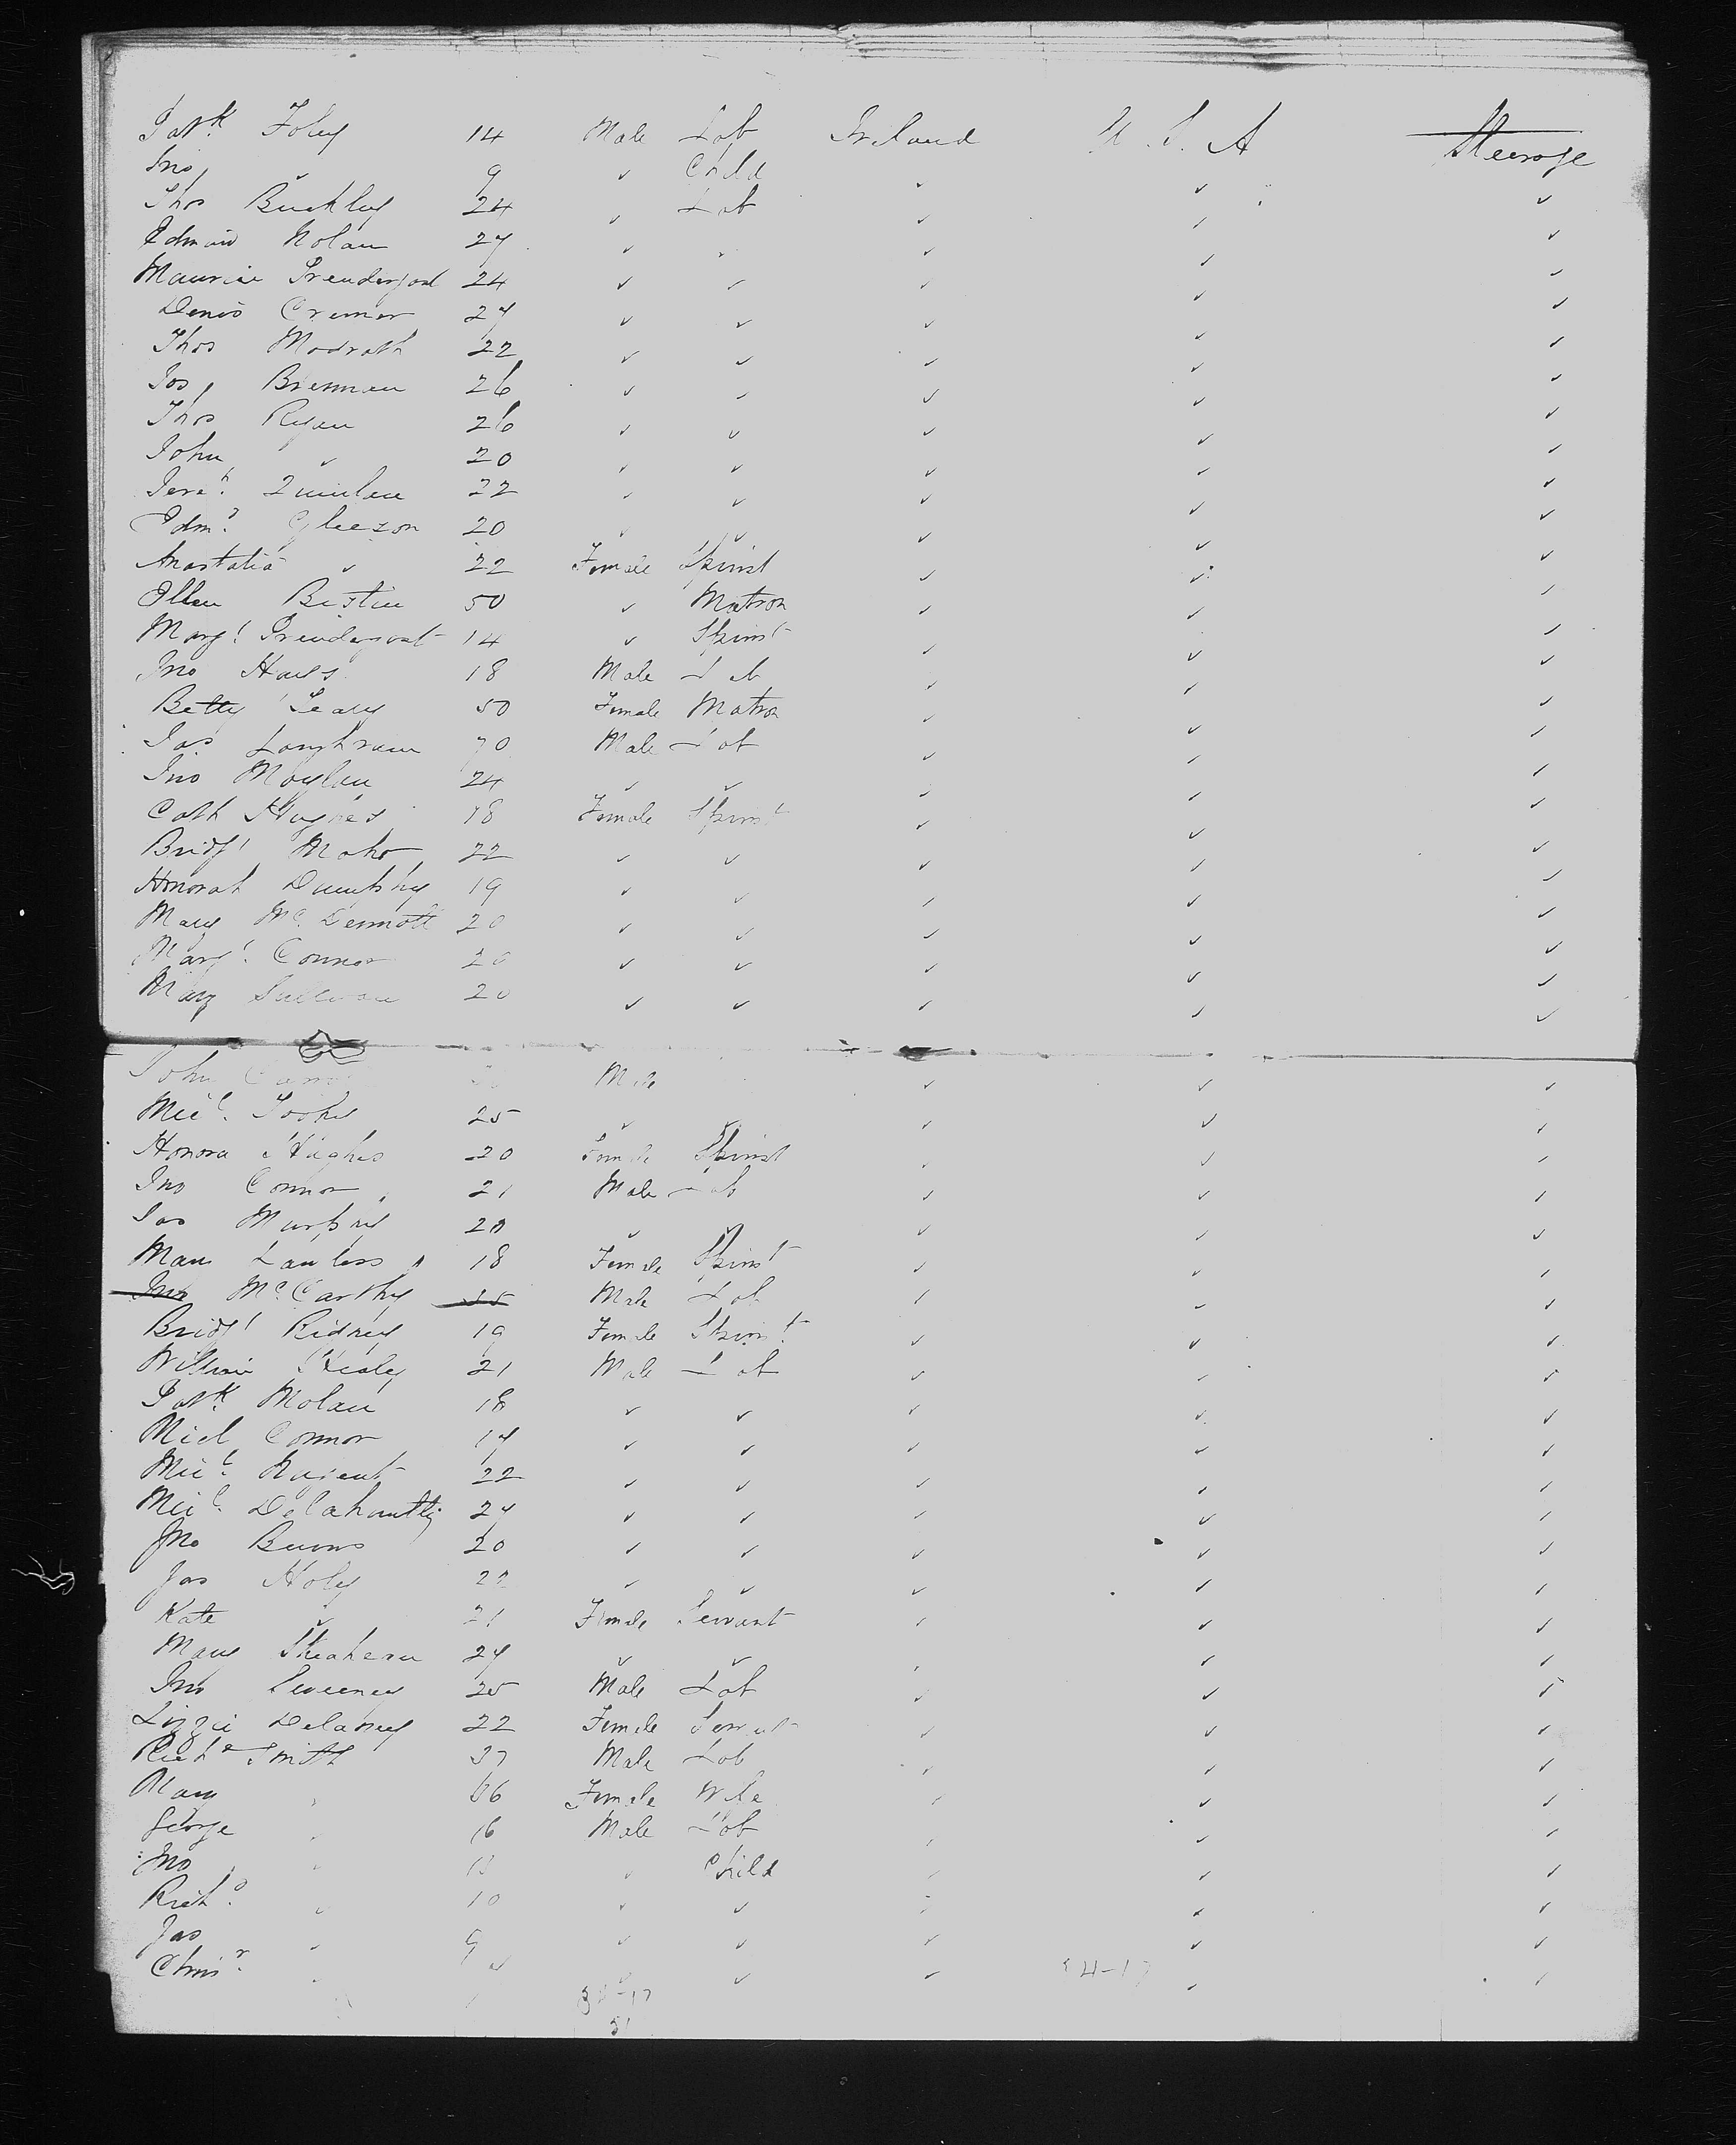 Patk. Foley 14 Male Lab Ireland U.S.A Steerage
Jno ✓ 9 ✓ Child ✓ ✓ ✓
Thos Buckley 24 ✓ Lab ✓ ✓ ✓
Edmund Nolan 27 ✓ ✓ ✓ ✓ ✓
Maurice Prendergast 24 ✓ ✓ ✓ ✓ ✓
Denis Cremer 27 ✓ ✓ ✓ ✓ ✓
Thos 22 ✓ ✓ ✓ ✓ ✓
Jos Brennan 26 ✓ ✓ ✓ ✓ ✓
Thos Ryan 26 ✓ ✓ ✓ ✓ ✓
John ✓ 20 ✓ ✓ ✓ ✓ ✓
Jereh. Quinlan 22 ✓ ✓ ✓ ✓ ✓
Edmd. Gleeson 20 ✓ ✓ ✓ ✓ ✓
Anastatia ✓ 22 Female Spinst ✓ ✓ ✓
Ellen 50 ✓ Matron ✓ ✓ ✓
Margt. Prendergast 14 ✓ Spinst ✓ ✓ ✓
Jno Hays 18 Male Lab ✓ ✓ ✓
Betty Leary 50 Female Matron ✓ ✓ ✓
Jas 70 Male Lab ✓ ✓ ✓
Jno Moylan 24 ✓ ✓ ✓ ✓ ✓
Cath Hughes 18 Female Spinst ✓ ✓ ✓
Bridgt Maher 22 ✓ ✓ ✓ ✓ ✓
Honorah Dumphy 19 ✓ ✓ ✓ ✓ ✓
Mary McDermott 20 ✓ ✓ ✓ ✓ ✓
Margt. Connor 20 ✓ ✓ ✓ ✓ ✓
Mary Sullivan 20 ✓ ✓ ✓ ✓ ✓
John Male ✓ ✓ ✓
Micl. 25 ✓ ✓ ✓ ✓ ✓
Honora Hughes 20 Female Spinst ✓ ✓ ✓
Jno Connor 21 Male Lab ✓ ✓ ✓
Jas Murphy ✓ ✓ ✓ ✓ ✓
Lawless 18 Female Spinst ✓ ✓ ✓
Jno McCarthy Male Lab ✓ ✓ ✓
Bridgt 19 Female Spinst ✓ ✓ ✓
William Healey 21 Male Lab ✓ ✓ ✓
Patk. 18 ✓ ✓ ✓ ✓ ✓
Micl Connor 17 ✓ ✓ ✓ ✓ ✓
Micl. Nugent 22 ✓ ✓ ✓ ✓ ✓
Micl. Delahuntty 27 ✓ ✓ ✓ ✓ ✓
Jno Burns 20 ✓ ✓ ✓ ✓ ✓
Jas 22 ✓ ✓ ✓ ✓ ✓
Kate ✓ 21 Female Servant ✓ ✓ ✓
Mary 27 ✓ ✓ ✓ ✓ ✓
Jno Sweeney 25 Male Lab ✓ ✓ ✓
Lizzie Delaney 22 Female Servant ✓ ✓ ✓
Richd Smith 37 Male Lab ✓ ✓ ✓
Mary ✓ 36 Female Wife ✓ ✓ ✓
George ✓ 16 Male Lab ✓ ✓ ✓
Jno ✓ ✓ Child ✓ ✓ ✓
Richd. ✓ 10 ✓ ✓ ✓ ✓ ✓
Jas ✓ 9 ✓ ✓ ✓ ✓ ✓
Chrisr. ✓ ✓ ✓ ✓ ✓ ✓
34-17 34-17
51